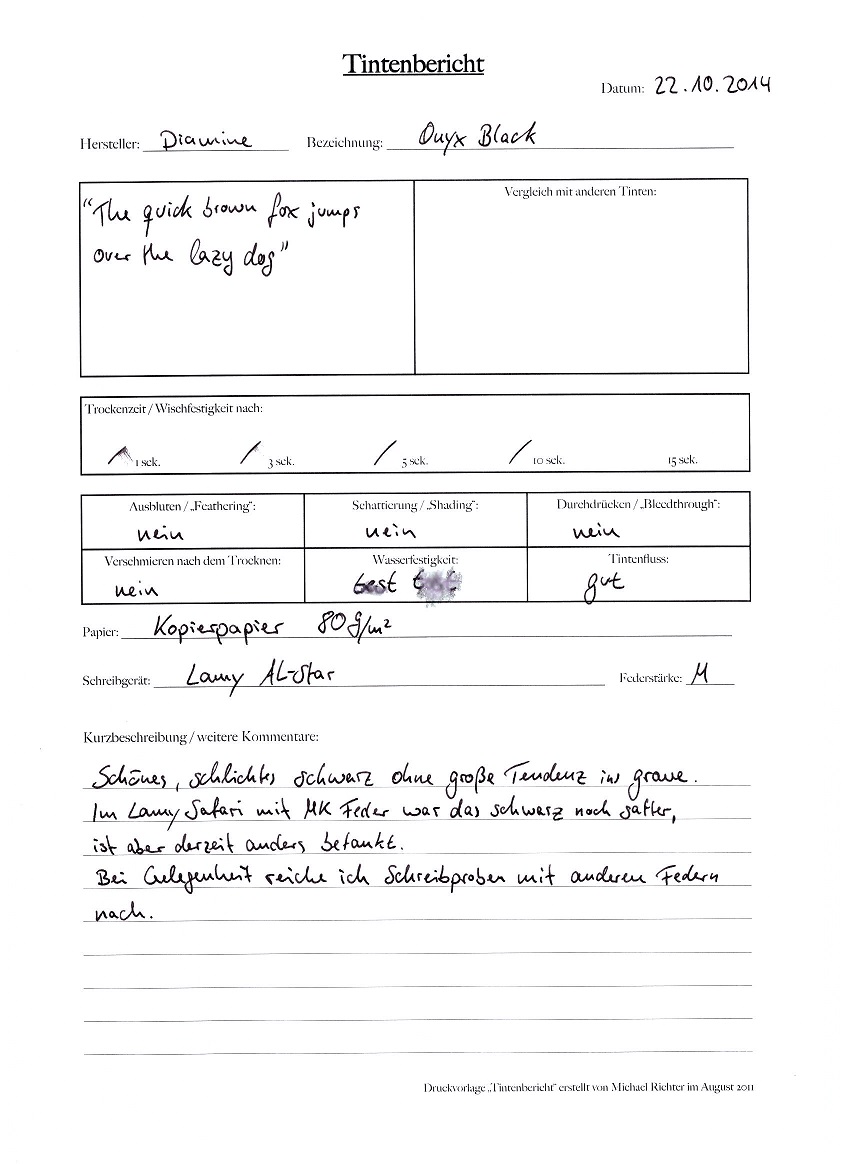 Tintenbericht
Datum: 22.10.2014
Hersteller: Diamine Bezeichnung: Onyx Black
"The quick brown fox jumps
over the lazy dog"
Vergleich mit anderen Tinten:
Trockenzeit / Wischfestigkeit nach:
1 sek. 3 sek. 5 sek. 10 sek. 15 sek.
Ausbluten / „Feathering“: Schattierung / „Shading“: Durchdrücken / „Bleedthrough“:
nein nein nein
Verschmieren nach dem Trocknen: Wasserfestigkeit: Tintenfluss:
nein test gut
Papier: Kopierpapier 80 g/m²
Schreibgerät: Lamy AL-Star Federstärke: M
Kurzbeschreibung / weitere Kommentare:
Schönes, schlichtes schwarz ohne große Tendenz ins graue.
Im Lamy Safari mit MK Feder war das schwarz noch satter,
ist aber derzeit anders betankt.
Bei Gelegenheit reiche ich Schreibproben mit anderen Federn
nach.
Druckvorlage „Tintenbericht“ erstellt von Michael Richter im August 2011